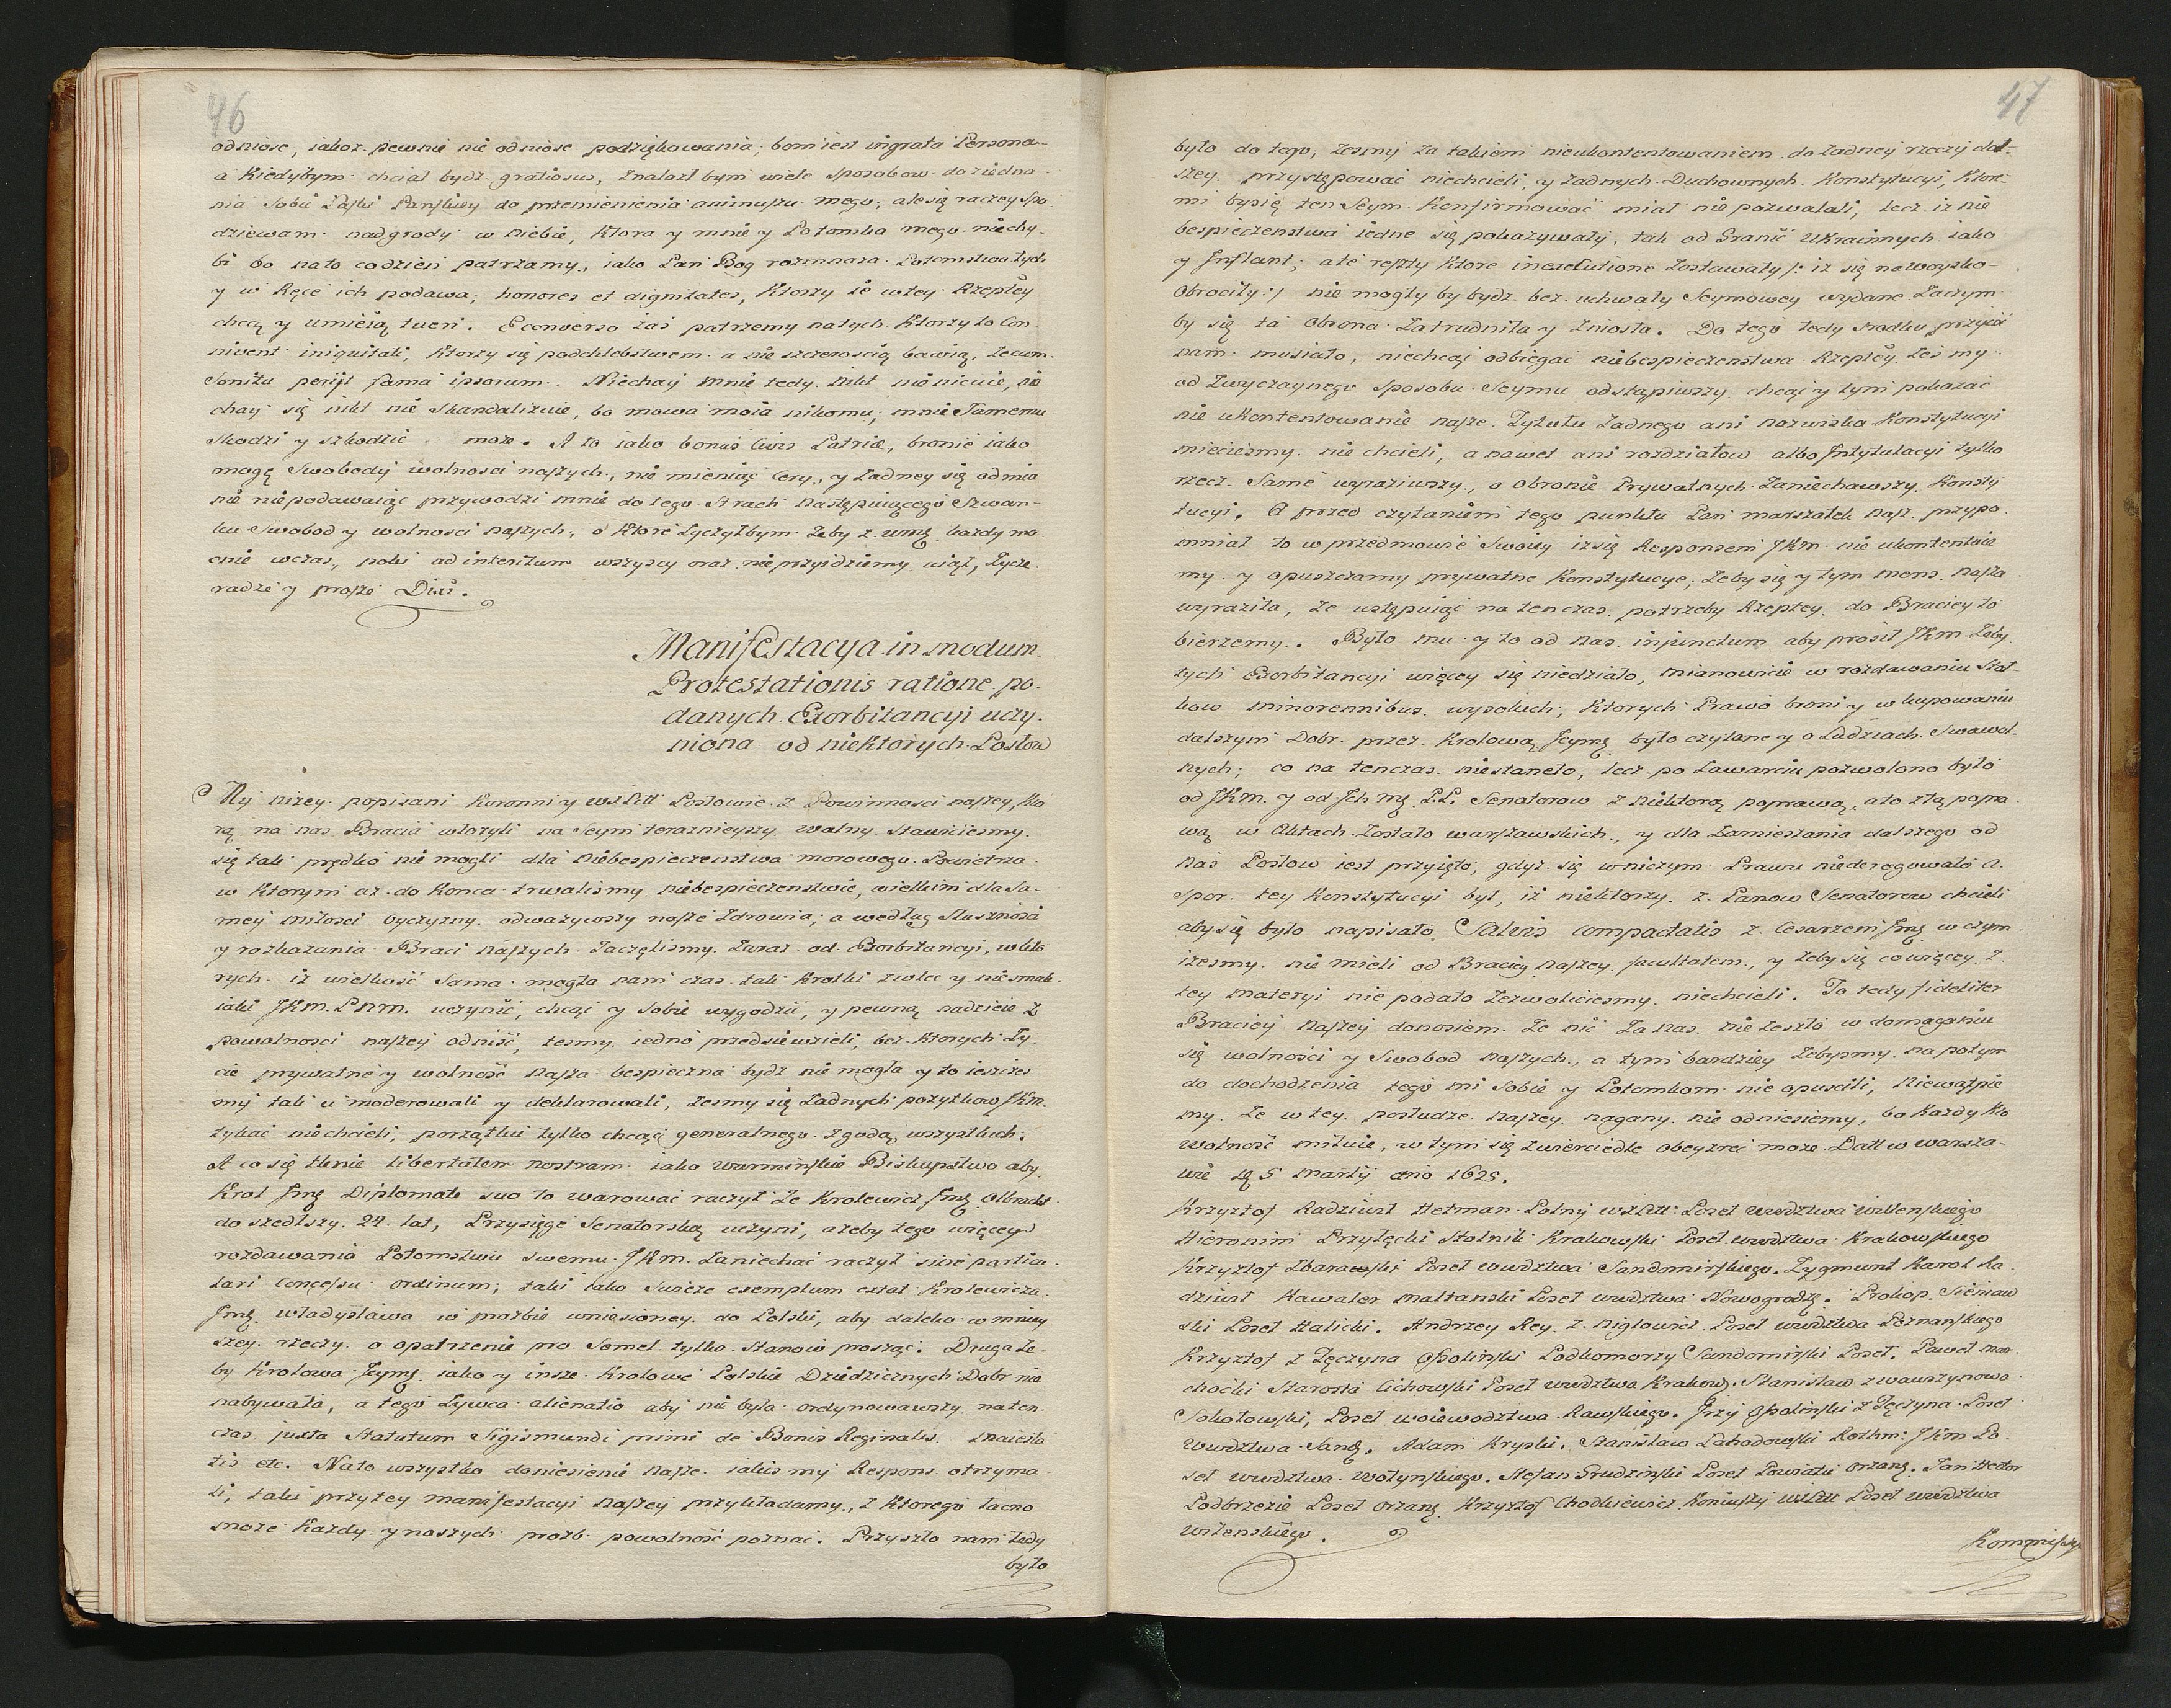 46
odniose, iakoz pewnie nie odniose podziękowania; bom iest ingrata Persona
a kiedybym chciał bydz gratiosus, znalazł bym wiele sposobow do ziedna
nia sobie Łaski Pańskiey do przemienienia animuszu mego; ale się raczey spo
dziewam nadgrody w niebie, ktora y mnie y Potomka mego niechy
bi bo nato codzień patrzamy, iako Pan Bog rozmnaza Potomstwa tych
y w Ręce ich podawa, honores et dignitates, ktorzy ie wtey Rzeptey
chcą y umieią tueri. Econverso zaś patrzemy natych ktorzy to Con
nivent iniquitati, ktorzy się podchlebstwem a nie szczerością bawią, że cum
sonitu perijt fama ipsorum. Niechay mnie tedy nikt nie nicuie, nie
chay się nikt nie skandalizuie, bo mowa moia nikomu, mnie samemu
szkodzi y szkodzić może. A to iako bonus Civis Patriæ, bronie iako
mogę Swobody wolnosci naszych, nie mieniąc Cery, y żadney się odmia
nie niepodawaiąc przywodzi mnie do tego Strach następuiącego Szwan-
ku Swobod y wolnosci naszych, o ktore życzyłbym żeby z umę kazdy mo
cnie wczas, poki ad interitum wszyscy oraz nie przyidziemy uiął, życze
radze y prosze Dixi.
Manifestacya in modum
Protestationis ratione po-
danych Exorbitancyi uczy-
niona od niektorych Posłow
My nizey popisani Koronni y wxLitt Posłowie z Powinnosci naszey, kto
rą na nas Bracia włozyli na Seym teraznieyszy walny stawilismy
się tak prędko nie mogli dla niebespieczenstwa morowego Powietrza
w ktorym az do Konca trwalismy niebespieczenstwie, wielkim dla sa-
mey miłosci oyczyzny odwazywszy nasze zdrowia; a według słusznosci
y rozkazania Braci naszych zaczęlismy zaraz od Exorbitancyi, w kto
rych iz wielkość sama mogła nam czas tak krotki zwlec y niesmak
iaki JKm. Pnm. uczynić, chcąc y sobie wygodzić, y pewną nadzieie z
powolnosci naszey odnieść, tesmy iedno przedsiewzieli, bez ktorych ży-
cie prywatne y wolność nasza bespieczna bydz nie mogła y to ieszcze
my tak u moderowali y deklarowali, żesmy się żadnych pozytkow JKm.
tykać nie chcieli, porządku tylko chcąc generalnego zgodą wszystkich.
A co się tknie libertatem nostram iako warmińskie Biskupstwo aby
Krol Jmę Diplomate suo to warować raczył że Krolewicz Jmę Olbracht
doszedłszy 24. lat, Przysięge Senatorską uczyni, a żeby tego więcey
rozdawania Potomstwu swemu JKm. zaniechać raczył sine particu
lari Concessu ordinum; taki iako swieze exemplum extat Krolewicza
Jmę Władysława w prozbie wniesioney do Polski, aby daleko w mniey
szey rzeczy o opatrzenie pro semel tylko Stanow prosząc. Druga że-
by Krolowa Jeymę iako y insze Krolowe Polskie Dziedzicznych Dobr nie
nabywała, a tego Żywca alienatio aby nie była ordynowawszy naten
czas juxta Statutum Sigismundi primi de Bonis Reginalis Maiesta
tis etc. Nato wszystko doniesienie nasze iakis my Respons otrzyma
li, taki przy tey manifestacyi naszey przykładamy, z ktorego łacno
może kazdy y naszych prozb powolność poznać. Przyszło nam tedy
było
47
było do tego, żesmy za takiem nieukontentowaniem do żadney rzeczy dal-
szey przystępować niechcieli, y żadnych Duchownych Konstytucyi, ktore-
mi by się ten Seym Konfirmować miał nie pozwalali, lecz iz nie
bespieczenstwa iedne się pokazywały, tak od Granic Ukrainnych iako
y Inflant; ale reszty ktore inexecutione zostawały /: iz się na woysko
obrociły :/ nie mogły by bydz bez uchwały Seymowey wydane zaczym
by się ta obrona zatrudniła y zniosła. Do tego tedy srodku przyiść
nam musiało, niechcąc odbiegać niebespieczenstwa Rzeptey żes my
od zwyczaynego sposobu Seymu odstąpiwszy chcąc y tym pokazać
nie ukontentowanie nasze. Tytułu żadnego ani nazwiska Konstytucyi
mieciesmy nie chcieli, a nawet ani rozdziałow albo Intytulacyi tylko
rzecz samę wyraziwszy, o obronie Prywatnych zaniechawszy Konsty
tucyi. A przed czytaniem tego punktu Pan marszałek nasz przypo
mniał to w przedmowie swoiey iz się Responsem JKm. nie ukontentuie
my y opuszczamy prywatne Konstytucye, żeby się y tym mens nasza
wyraziła, że ustępuiąc na ten czas potrzeby Rzeptey do Braciey to
bierzemy. Było mu y to od nas injunctum aby prosił JKm. żeby
tych Exorbitancyi więcey się niedziało, mianowicie w rozdawaniu Stoł-
kow minorennibus wysokich, ktorych Prawo broni y w kupowaniu
dalszym Dobr przez Krolową Jeymę było czytane y o Ludziach Swawol-
nych; co na tenczas niestaneło, lecz po zawarciu pozwolono było
od JKm. y od Jch mę P.P. Senatorow z niektorą poprawą, a to z tą popra
wą w Aktach zostało warszawskich, y dla zamieszania dalszego od
nas Posłow iest przyięto, gdyz się wniczym Prawu niederogowało a
spor tey Konstytucyi był, iz niektorzy z Panow Senatorow chcieli
aby się było napisało Salvis compactatis z Cesarzem Jmę w czym
izesmy nie mieli od Braciey naszey facultatem, y żeby się co więcey z
tey materyi nie podało zezwolićiesmy niechcieli. To tedy fideliter
Braciey naszey donosiem że nic za nas nie zeszło w domaganiu
się wolności y Swobod naszych, a tym bardziey żebysmy na potym
do dochodzenia tego mi sobie y Potomkom nie opuscili, niewątpie
my że w tey posłudze naszey nagany nie odniesiemy, bo każdy kto
wolność miłuie, w tym się zwierciedle obeyrzeć może. Datt w warsza-
wie d. 5 Martij ano 1625.
Krzysztof Radziwił Hetman Polny wxLitt Poseł wwdztwa Willenskiego
Hieronim Przyłęcki Stolnik Krakowski Poseł wwdztwa Krakowskiego
Krzysztof Zbarawski Poseł wwdztwa Sandomirskiego. Zygmunt Karol Ra
dziwił Kawaler Maltanski Poseł wwdztwa Nowogrodz. Prokop Sieniaw
ski Poseł Halicki. Andrzey Rey z Nigłowicz Poseł wwdztwa Poznańskiego
Krzysztof z Tęczyna Ossoliński Podkomorzy Sandomirski Poseł. Paweł Mar
chocki Starosta Cichowski Poseł wwdztwa Krakow. Stanisław z wauszynowa
Sokołowski, Poseł woiewodztwa Rawskiego. Jrzy Ossoliński z Tęczyna Poseł
wwdztwa Sand. Adam Kryski. Stanisław Lahodowski Rothm: JKm Po
seł wwdztwa Wołynskiego. Stefan Grudziński Poseł Powiatu Orzans. Jan Hector
Podbrzezie Poseł Orzans Krzysztof Chodkiewicz Koniuszy WxLitt Poseł wwdztwa
wilenskiego.
Kommissya